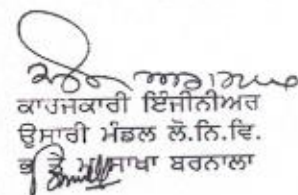 ਕਾਰਜਕਾਰੀ ਇੰਜੀਨੀਅਰ
ਉਸਾਰੀ ਮੰਡਲ ਲੋ.ਨਿ.ਵਿ.
ਭ ਤੇ ਮ ਸਾਖਾ ਬਰਨਾਲਾ